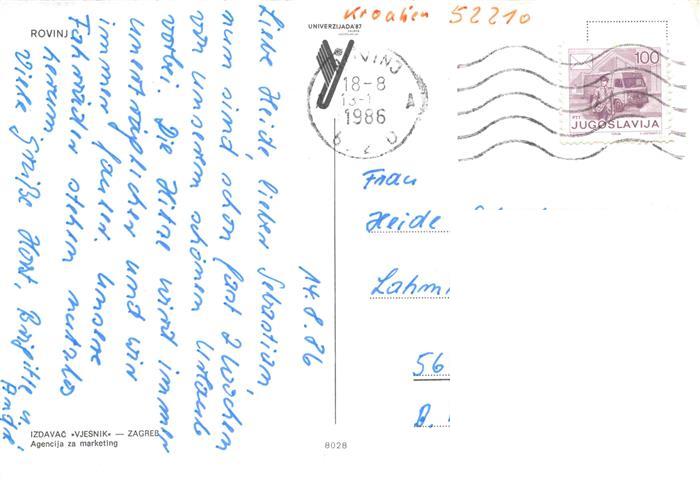 ROVINJ
UNIVERZIJADA'87
Kroatien 52210
14.8.86
Liebe Heide, lieber Sebastian,
nun sind schon fast 2 Wochen
von unserem schönen Urlaub
vorbei. Die Hitze wird immer
unerträglicher und wir
immer fauler. Unsere
Fahrräder stehen nutzlos
herum
Viele Grüße Horst, Brigitte u.
Anja
ROVINJ
18-8
13-1
1986
A
100
PTT
JUGOSLAVIJA
Frau
Heide
Lahm
56
IZDAVAČ »VJESNIK« — ZAGREB
Agencija za marketing
8028